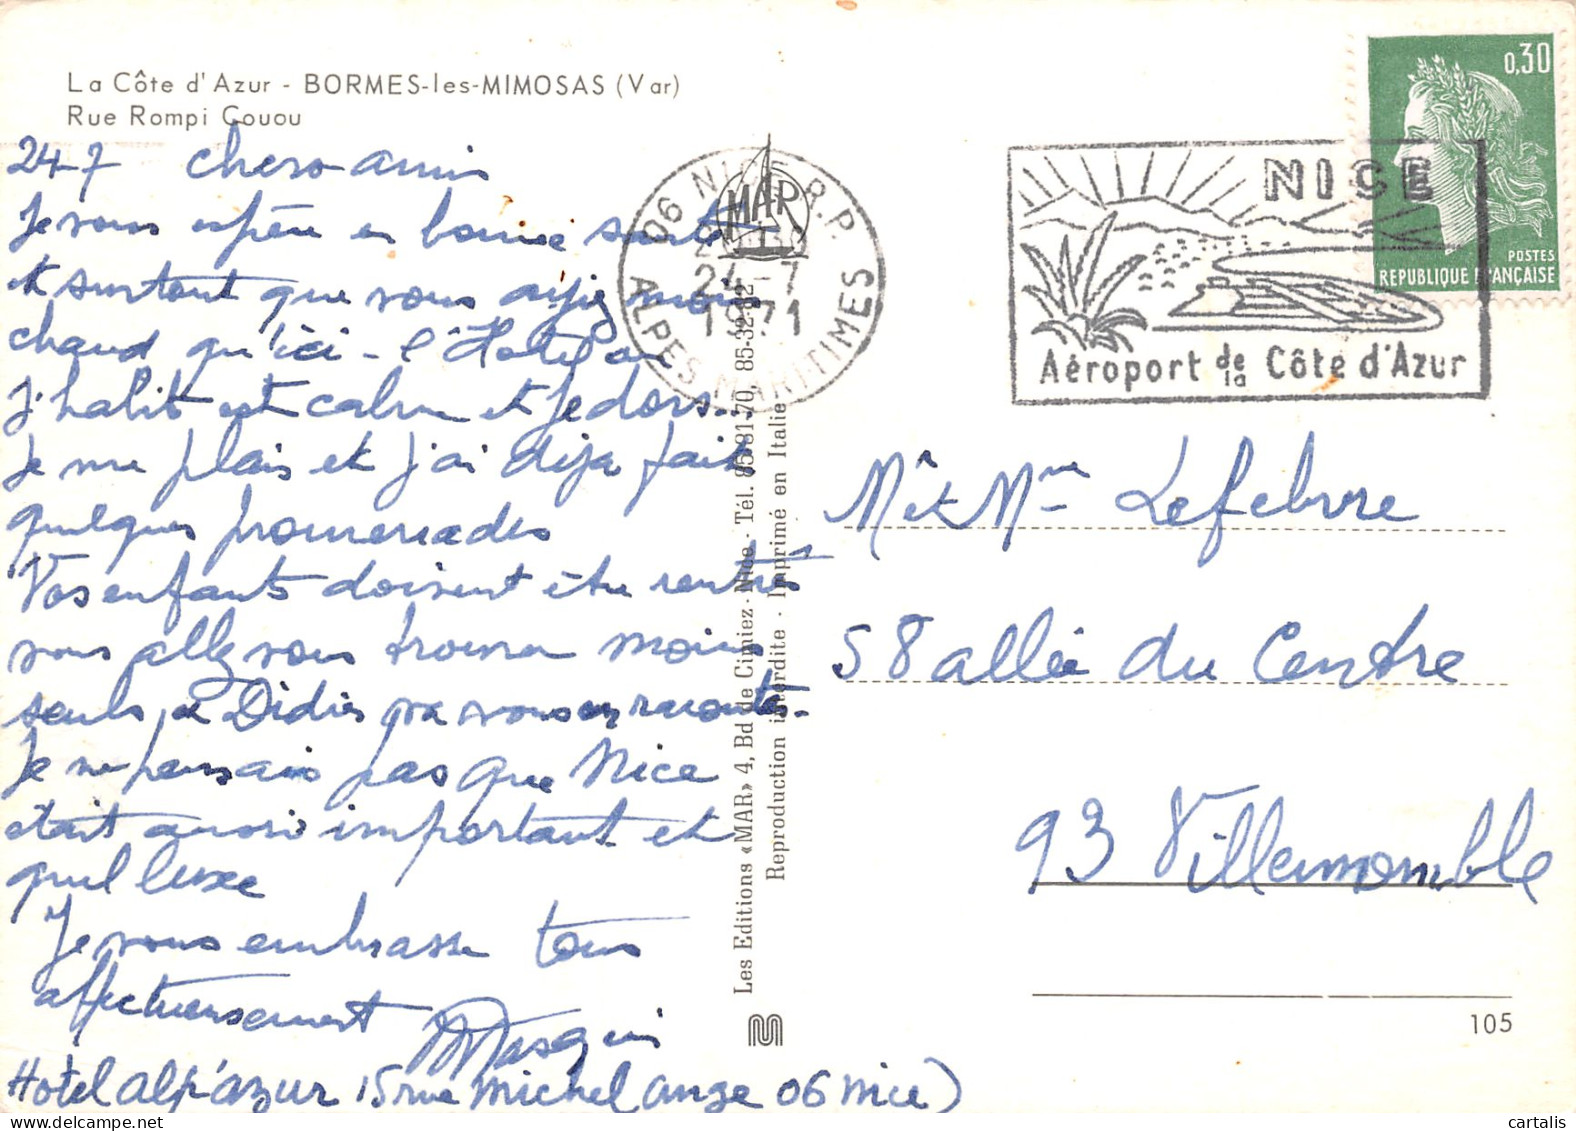 La Côte d'Azur - BORMES-les-MIMOSAS (Var)
Rue Rompi Couou
24-7 chers amis
Je vous espère en bonne santé
et surtout que vous ayiez moins
chaud qu'ici - l'Hotel ou
j'habite est calme et je dors.
Je me plais et j'ai deja fait
quelques promenades
Vos enfants doivent être rentrés
vous allez vous trouver moins
seuls, et Didier va vous en raconter.
Je ne pensais pas que Nice
était aussi important et
quel luxe
Je vous embrasse tous
affectueusement
Hotel alp'azur 15 rue Michel ange 06 Nice)
MAR
06 NICE R.P.
24-7
1971
ALPES-MARITIMES
NICE
Aéroport de la Côte d'Azur
0,30
POSTES
REPUBLIQUE FRANÇAISE
Les Editions «MAR» 4, Bd de Cimiez - Nice - Tél. 85-81-70, 85-32-
Reproduction interdite - Imprimé en Italie
Mr et Mme Lefebvre
58 allée du Centre
93 Villemomble
105
cartalis